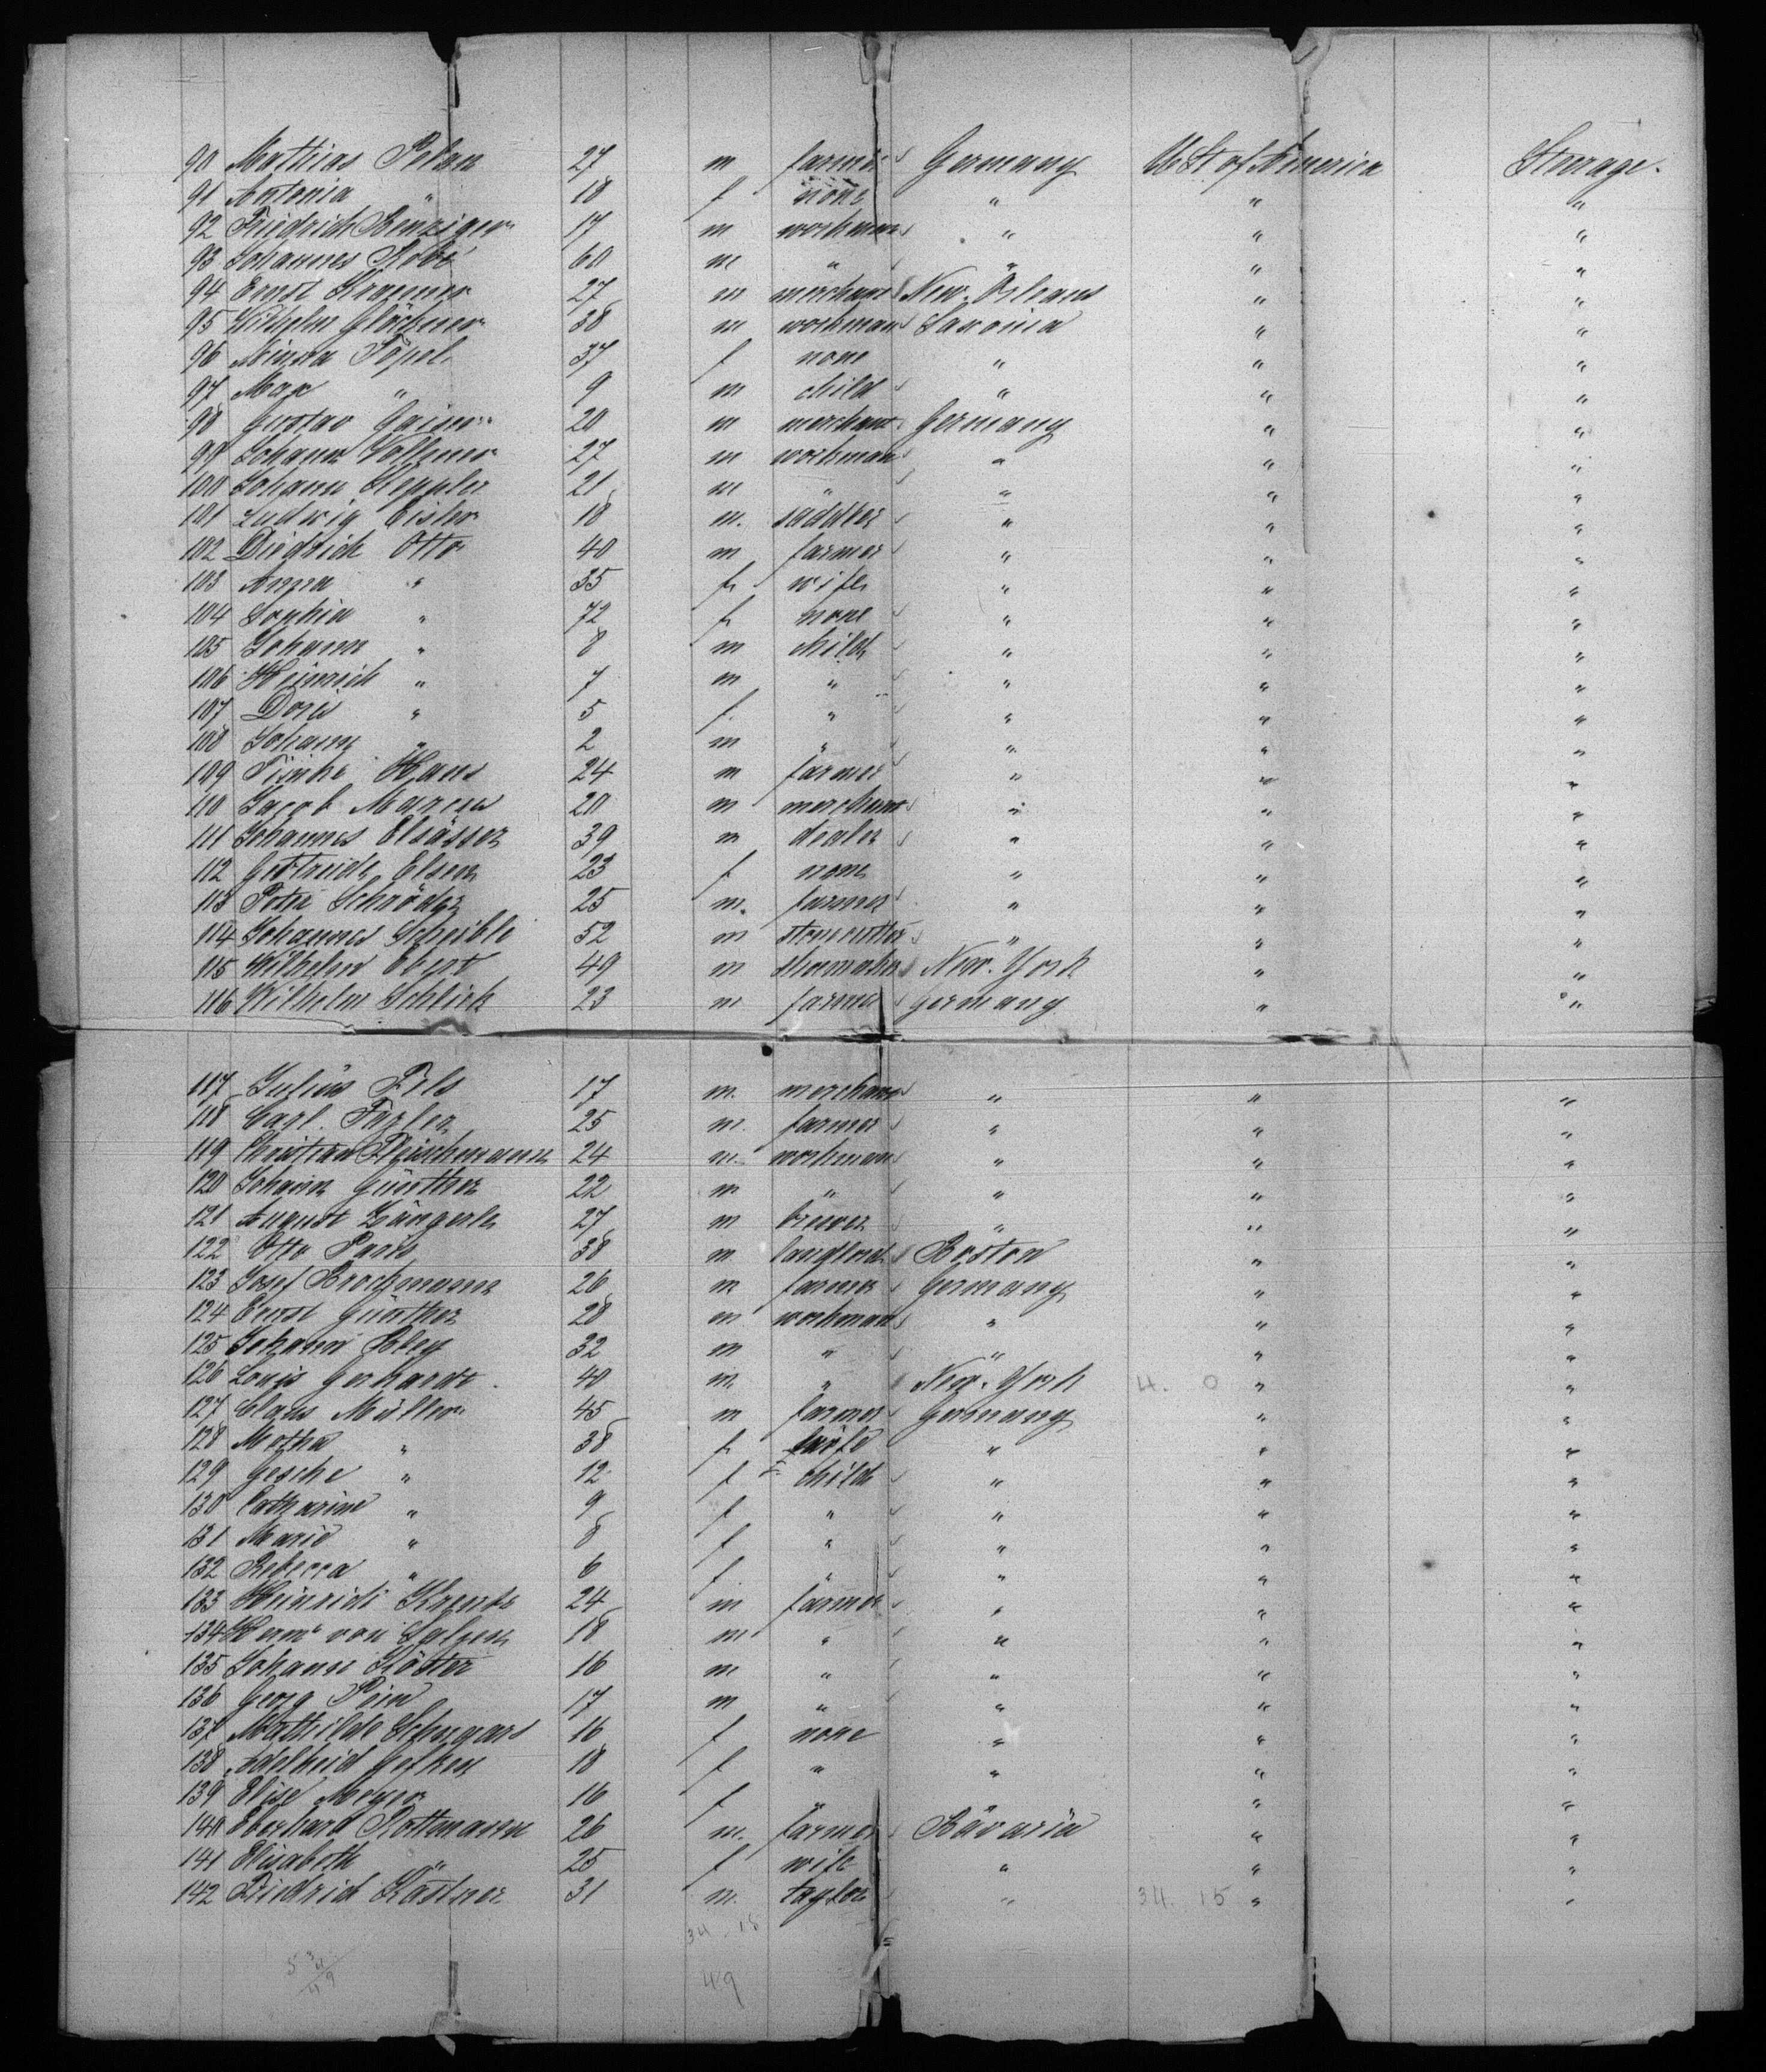 90 Mathias Pelan 27 m farmer Germany U St of America Steerage.
91 Antonia " 18 f none " " "
92 Friedrich Benziger 17 m workman " " "
93 Johannes Robé 60 m " " " "
94 Ernst Kraemer 27 m merchant New-Orleans " "
95 Wilhelm Glöckner 38 m workman Saxonia " "
96 Minna Töpel 37 f none " " "
97 Max " 9 m child " " "
98 Gustav Gaiser 20 m merchant Germany " "
99 Johann Vollmer 27 m workman " " "
100 Johann Keppler 21 m " " " "
101 Ludwig Eisler 18 m. saddler " " "
102 Diedrich Otto 40 m farmer " " "
103 Anna " 35 f wife " " "
104 Sophia " 72 f none " " "
105 Johann " 8 m child " " "
106 Heinrich " 7 m " " " "
107 Doris " 5 f. " " " "
108 Johann " 2 m " " " "
109 Hans 24 m farmer " " "
110 Jacob Marcus 20 m merchant " " "
111 Johannes Elsässer 39 m dealer " " "
112 Gertrude Elsen 23 f none " " "
113 Peter Schröder 25 m. farmer " " "
114 Johannes Scheible 52 m stonecutter " " "
115 Wilhelm Ebert 49 m shoemaker New-York " "
116 Wilhelm Schlick 23 m farmer Germany " "
117 Julius Fels 17 m. merchant " " "
118 Carl 25 m. farmer " " "
119 Christian Fleischmann 24 m. workman " " "
120 Johann Günther 22 m " " " "
121 August Zängerle 27 m brewer " " "
122 Otto Paris 38 m landlord Boston " "
123 Josef Brockmann 26 m farmer Germany " "
124 Ernst Günther 28 m workman " " "
125 Johann Bley 32 m " " " "
126 Louis Gerhardt 40 m. " New-York " "
127 Claus Müller 45 m farmer Germany " "
128 Metha " 38 f wife " " "
129 Gesche " 12 f child " " "
130 Catharine " 9 f " " " "
131 Marie " 8 f " " " "
132 Rebecca " 6 f " " " "
133 Heinrich 24 m farmer " " "
134 Herm von Salzen 18 m " " " "
135 Johann Köster 16 m " " " "
136 Georg Pein 17 m " " " "
137 Mathilde 16 f none " " "
138 Adelheid Gefken 18 f " " " "
139 Elise Meyer 16 f " " " "
140 Eberhard Rottmann 26 m. farmer Bavaria " "
141 Elisabeth " 25 f wife " " "
142 Friedrich Kästner 31 m. taylor " 34. 15 " "
34. 15
49